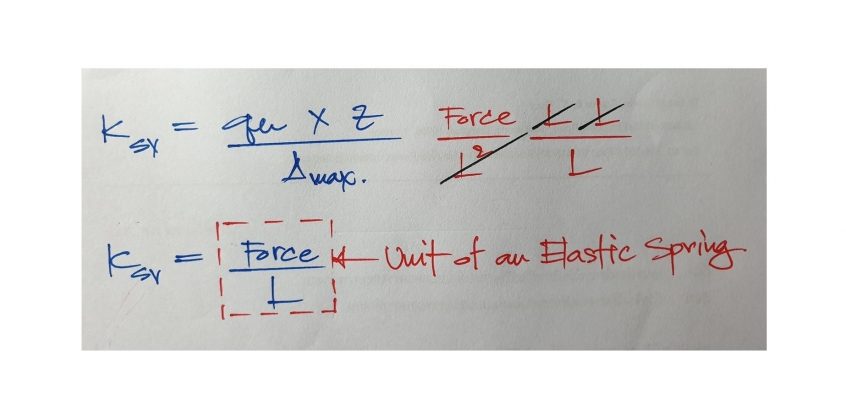 Ksv = qu x z / Δmax. Force / L² L L / L
Ksv = Force / L ← Unit of an Elastic Spring